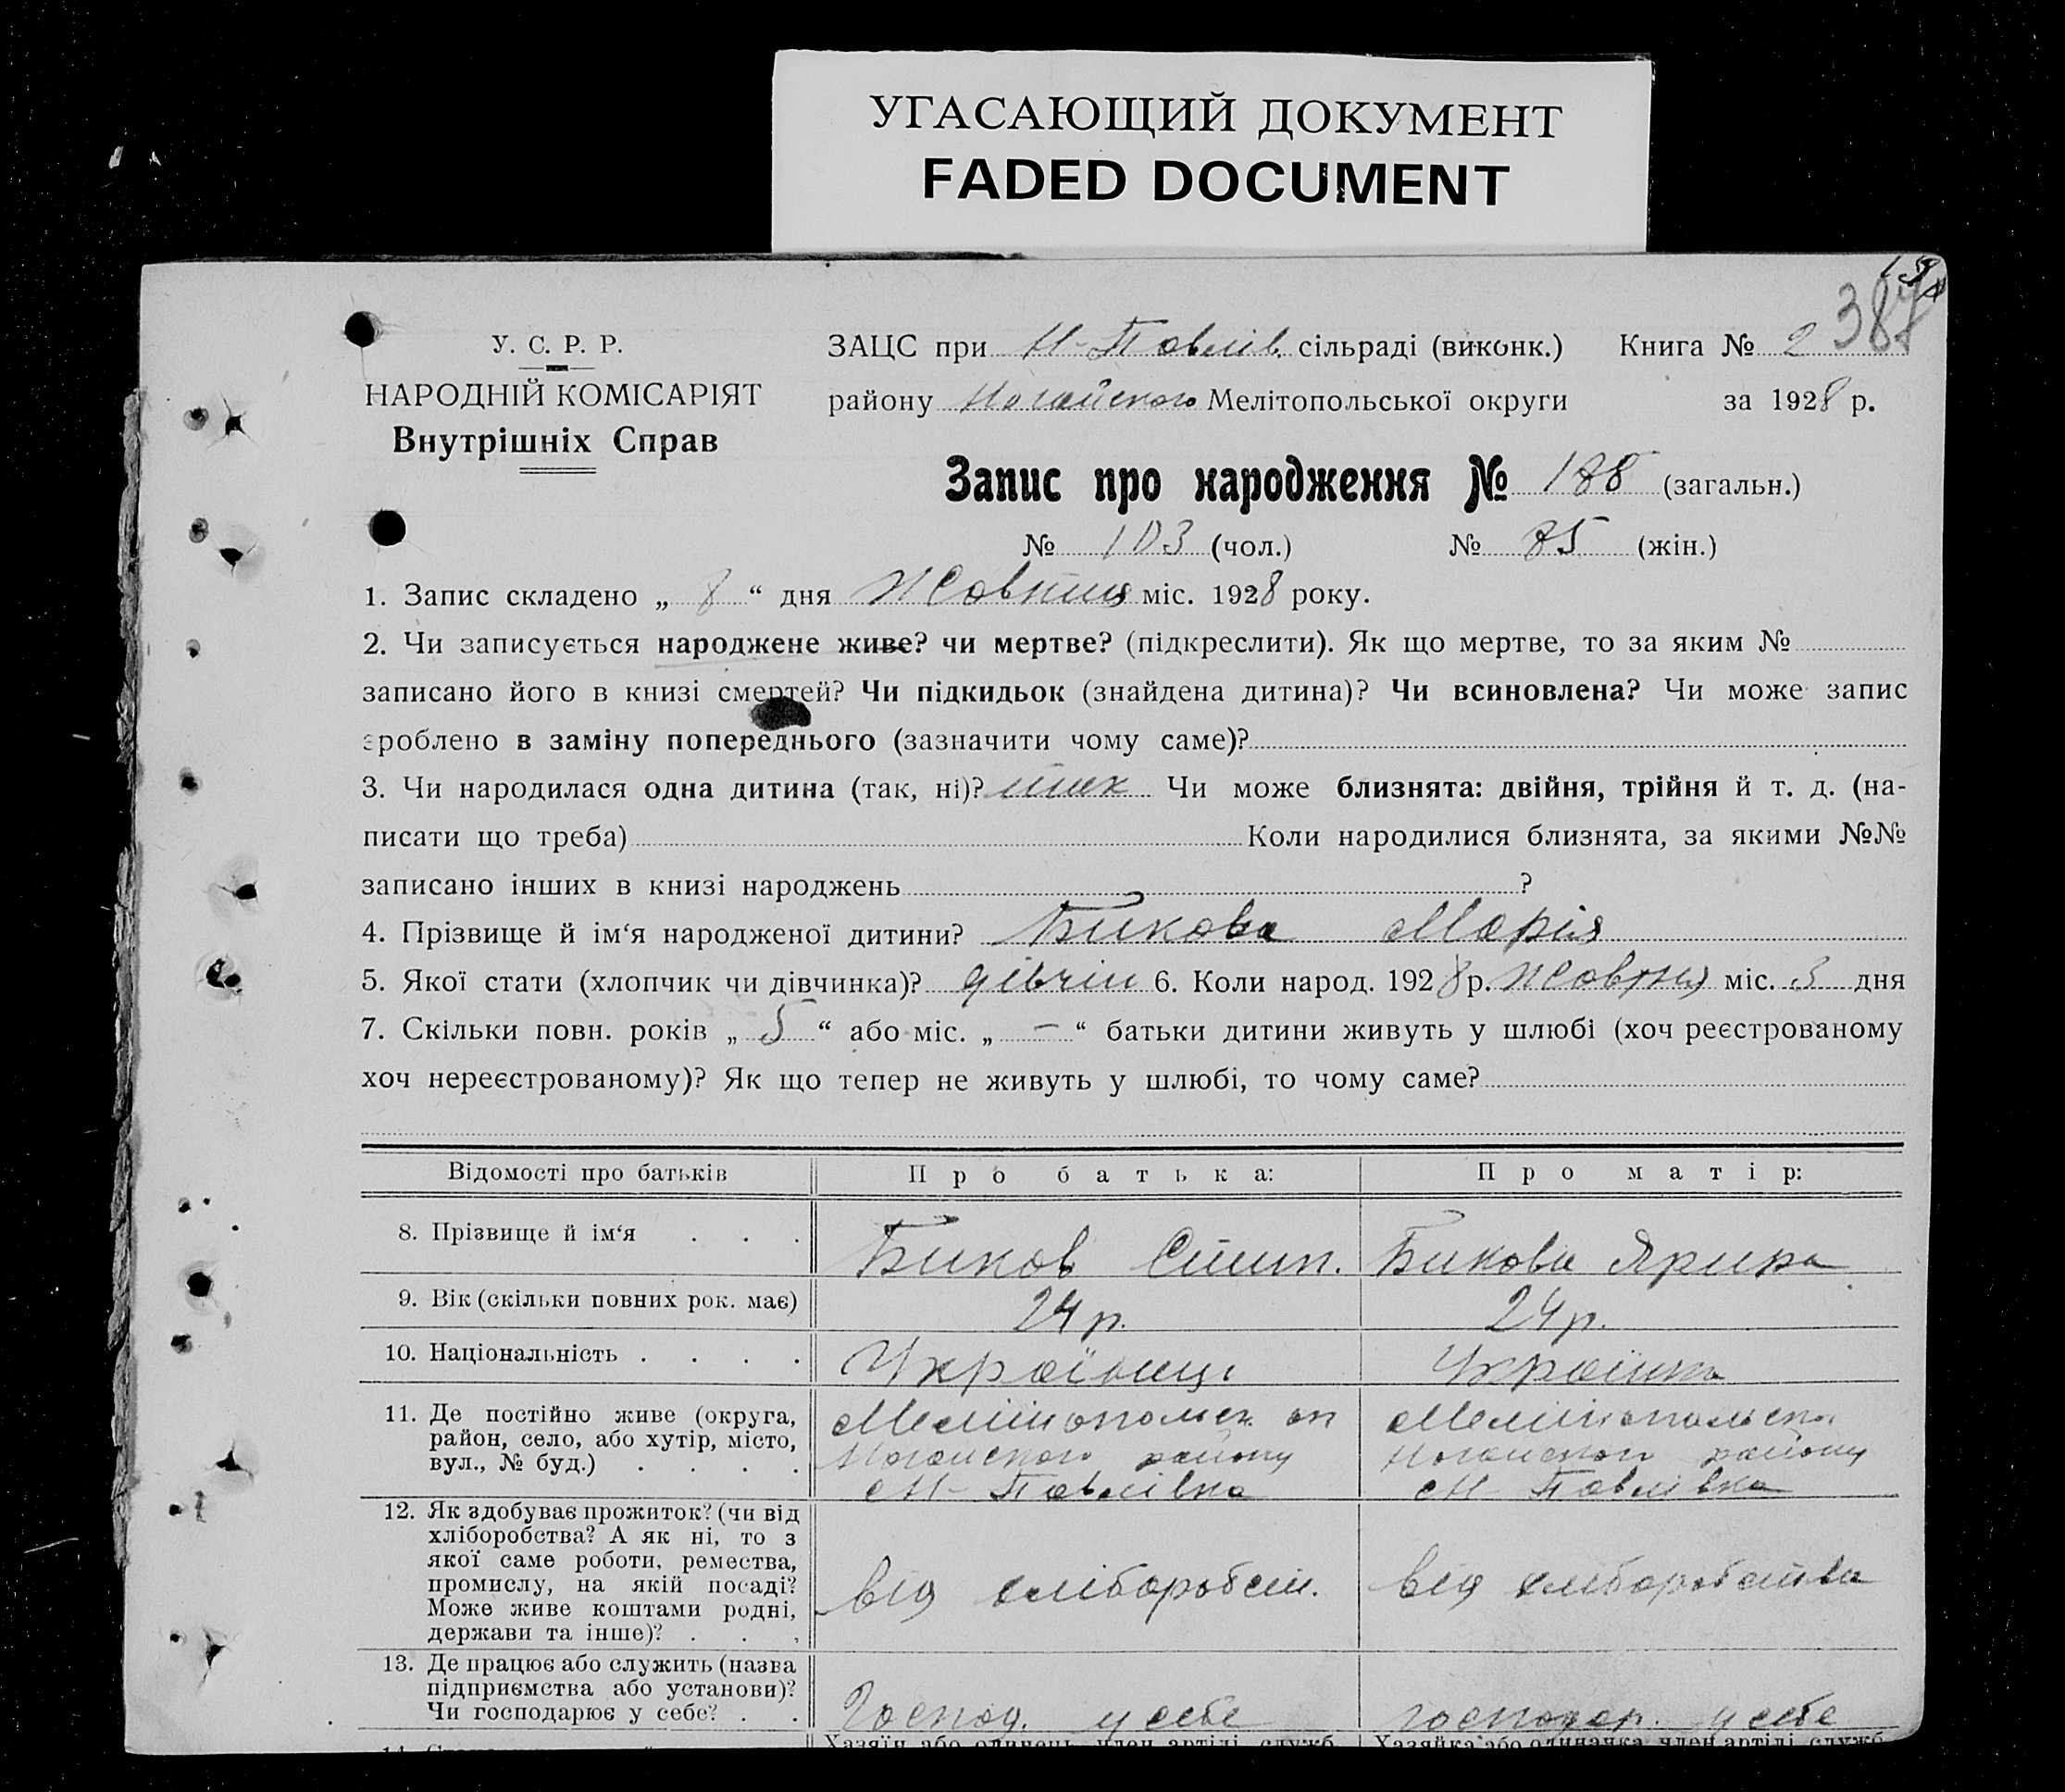 УГАСАЮЩИЙ ДОКУМЕНТ
FADED DOCUMENT
387
У. С. Р. Р.
НАРОДНІЙ КОМІСАРІЯТ
Внутрішніх Справ
ЗАЦС при Н-Павлів. сільраді (виконк.) Книга № 2
району Ногайского Мелітопольської округи за 1928 р.
Запис про народження № 188 (загальн.)
№ 103 (чол.) № 85 (жін.)
1. Запис складено „ 8 “ дня Жовтня міс. 1928 року.
2. Чи записується народжене живе? чи мертве? (підкреслити). Як що мертве, то за яким №
записано його в книзі смертей? Чи підкидьок (знайдена дитина)? Чи всиновлена? Чи може запис
зроблено в заміну попереднього (зазначити чому саме)?
3. Чи народилася одна дитина (так, ні)? так Чи може близнята: двійня, трійня й т. д. (на-
писати що треба) Коли народилися близнята, за якими №№
записано інших в книзі народжень ?
4. Прізвище й ім‘я народженої дитини? Бикова Марія
5. Якої стати (хлопчик чи дівчинка)? дівчин 6. Коли народ. 1928 р. Жовтня міс. 3 дня
7. Скільки повн. років „ 5 “ або міс. „ – “ батьки дитини живуть у шлюбі (хоч реєстрованому
хоч нереєстрованому)? Як що тепер не живуть у шлюбі, то чому саме?
Відомості про батьків Про батька: Про матір:
8. Прізвище й ім‘я . . . Биков Степ. Бикова
9. Вік (скільки повних рок. має) 24 р. 24 р.
10. Національність . . . . Українець Українка
11. Де постійно живе (округа, Мелітопольск. ок Мелітопольск.
район, село, або хутір, місто, Ногайского району Ногайского району
вул., № буд.) . . . . Н-Павлівка Н-Павлівка
12. Як здобуває прожиток? (чи від
хліборобства? А як ні, то з
якої саме роботи, ремества,
промислу, на якій посаді? від хліборобст. від хліборобства
Може живе коштами родні,
держави та інше)? . . .
13. Де працює або служить (назва
підприємства або установи)?
Чи господарює у себе? . . Господ. у себе господар. у себе
Хазяїн або одинець, член артілі, служб. Хазяйка або одиначка, член артілі, служб.